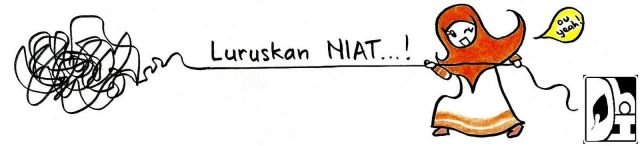 Luruskan NIAT...!
ou
yeah!